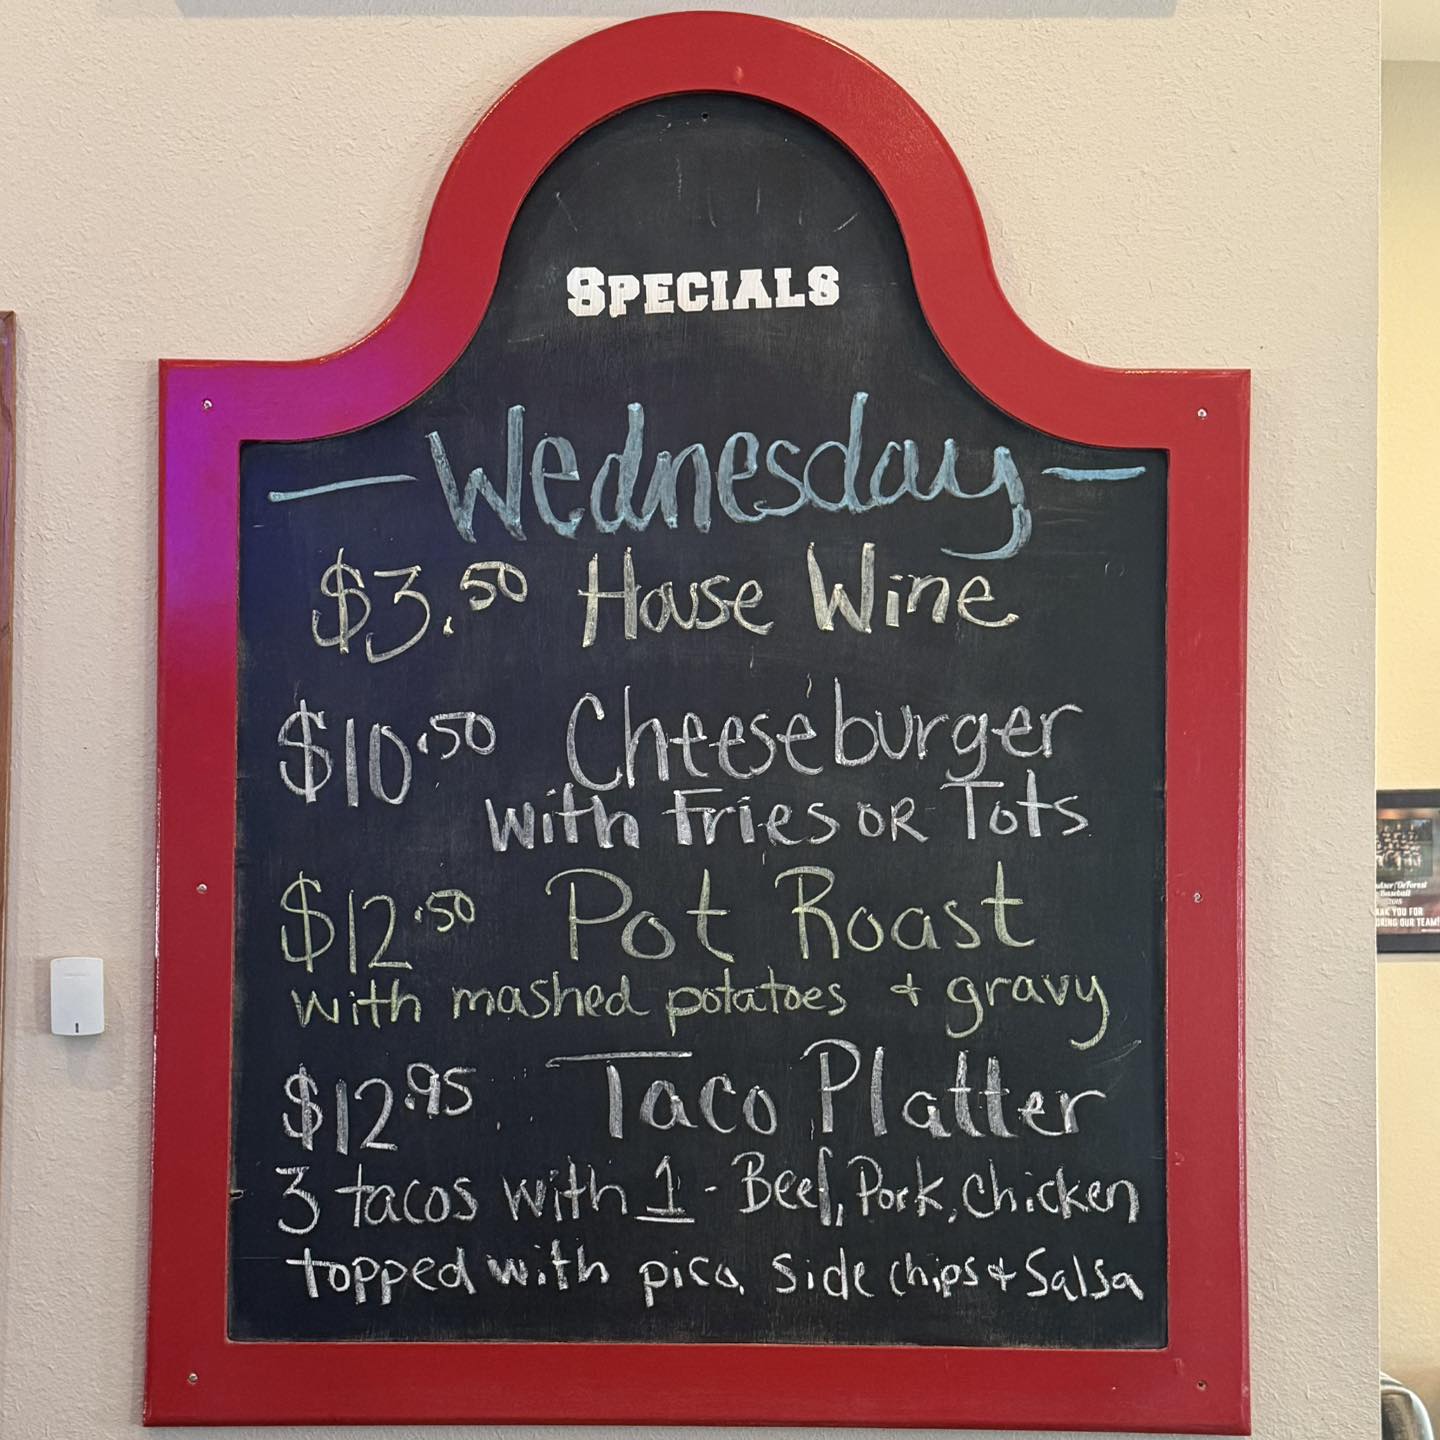 SPECIALS
- Wednesday -
$3.50 House Wine
$10.50 Cheeseburger
with Fries OR Tots
$12.50 Pot Roast
with mashed potatoes & gravy
$12.95 Taco Platter
3 tacos with 1 - Beef, Pork, Chicken
topped with pico, side chips & Salsa
Baseball
YOU FOR
OUR TEAM!